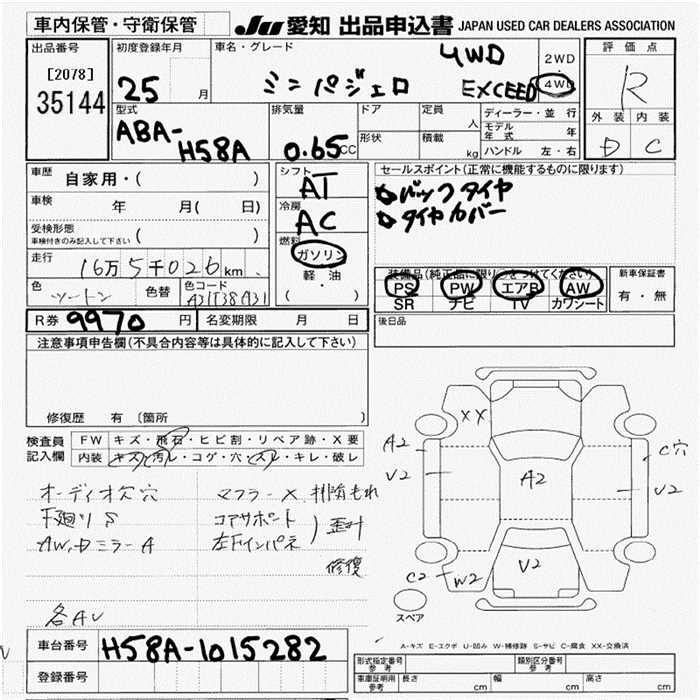 車内保管・守衛保管
JU 愛知 出品申込書 JAPAN USED CAR DEALERS ASSOCIATION
出品番号
[2078]
35144
初度登録年月
25 月
車名・グレード
4WD
ミニパジェロ
EXCEED
2WD
4WD
評価点
R
外装 内装
D C
型式
ABA-
H58A
排気量
0.65cc
ドア
形状
定員
人
積載
kg
ディーラー・並行
モデル年式 年
ハンドル 左・右
車歴 自家用・( )
車検 年 月( 日)
受検形態
車検付きのみ記入して下さい ( )
走行 16万5千026km
色 ツートン 色替 色コード
シフト
AT
冷房
AC
燃料
ガソリン
軽・油
( ・ )
セールスポイント(正常に機能するものに限ります)
バックタイヤ
タイヤカバー
装備品(純正品に限り○をつけてください)
PS PW エアB AW
SR ナビ TV カワシート
新車保証書
有・無
R券 9970 円 名変期限 月 日
後日品
注意事項申告欄(不具合内容等は具体的に記入して下さい)
修復歴 有 〔箇所 〕
検査員
記入欄
FW キズ・飛石・ヒビ割・リペア跡・X要
内装 キズ・汚レ・コゲ・穴・スレ・キレ・破レ
オーディオ欠穴 マフラーX 排気もれ
下廻りS コアサポート 歪み
AW, Dミラー A 左Fインパネ
修復
各AU
XX
A2
V2
A2
C穴
V2
V2
C2
W2
スペア
A-キズ E-エクボ U-凹み W-補修跡 S-サビ C-腐食 XX-交換済
車台番号 H58A-1015282
登録番号
形式指定番号
参考
類別区分番号
参考
車庫証明用
参考
長さ cm 幅 cm 高さ cm